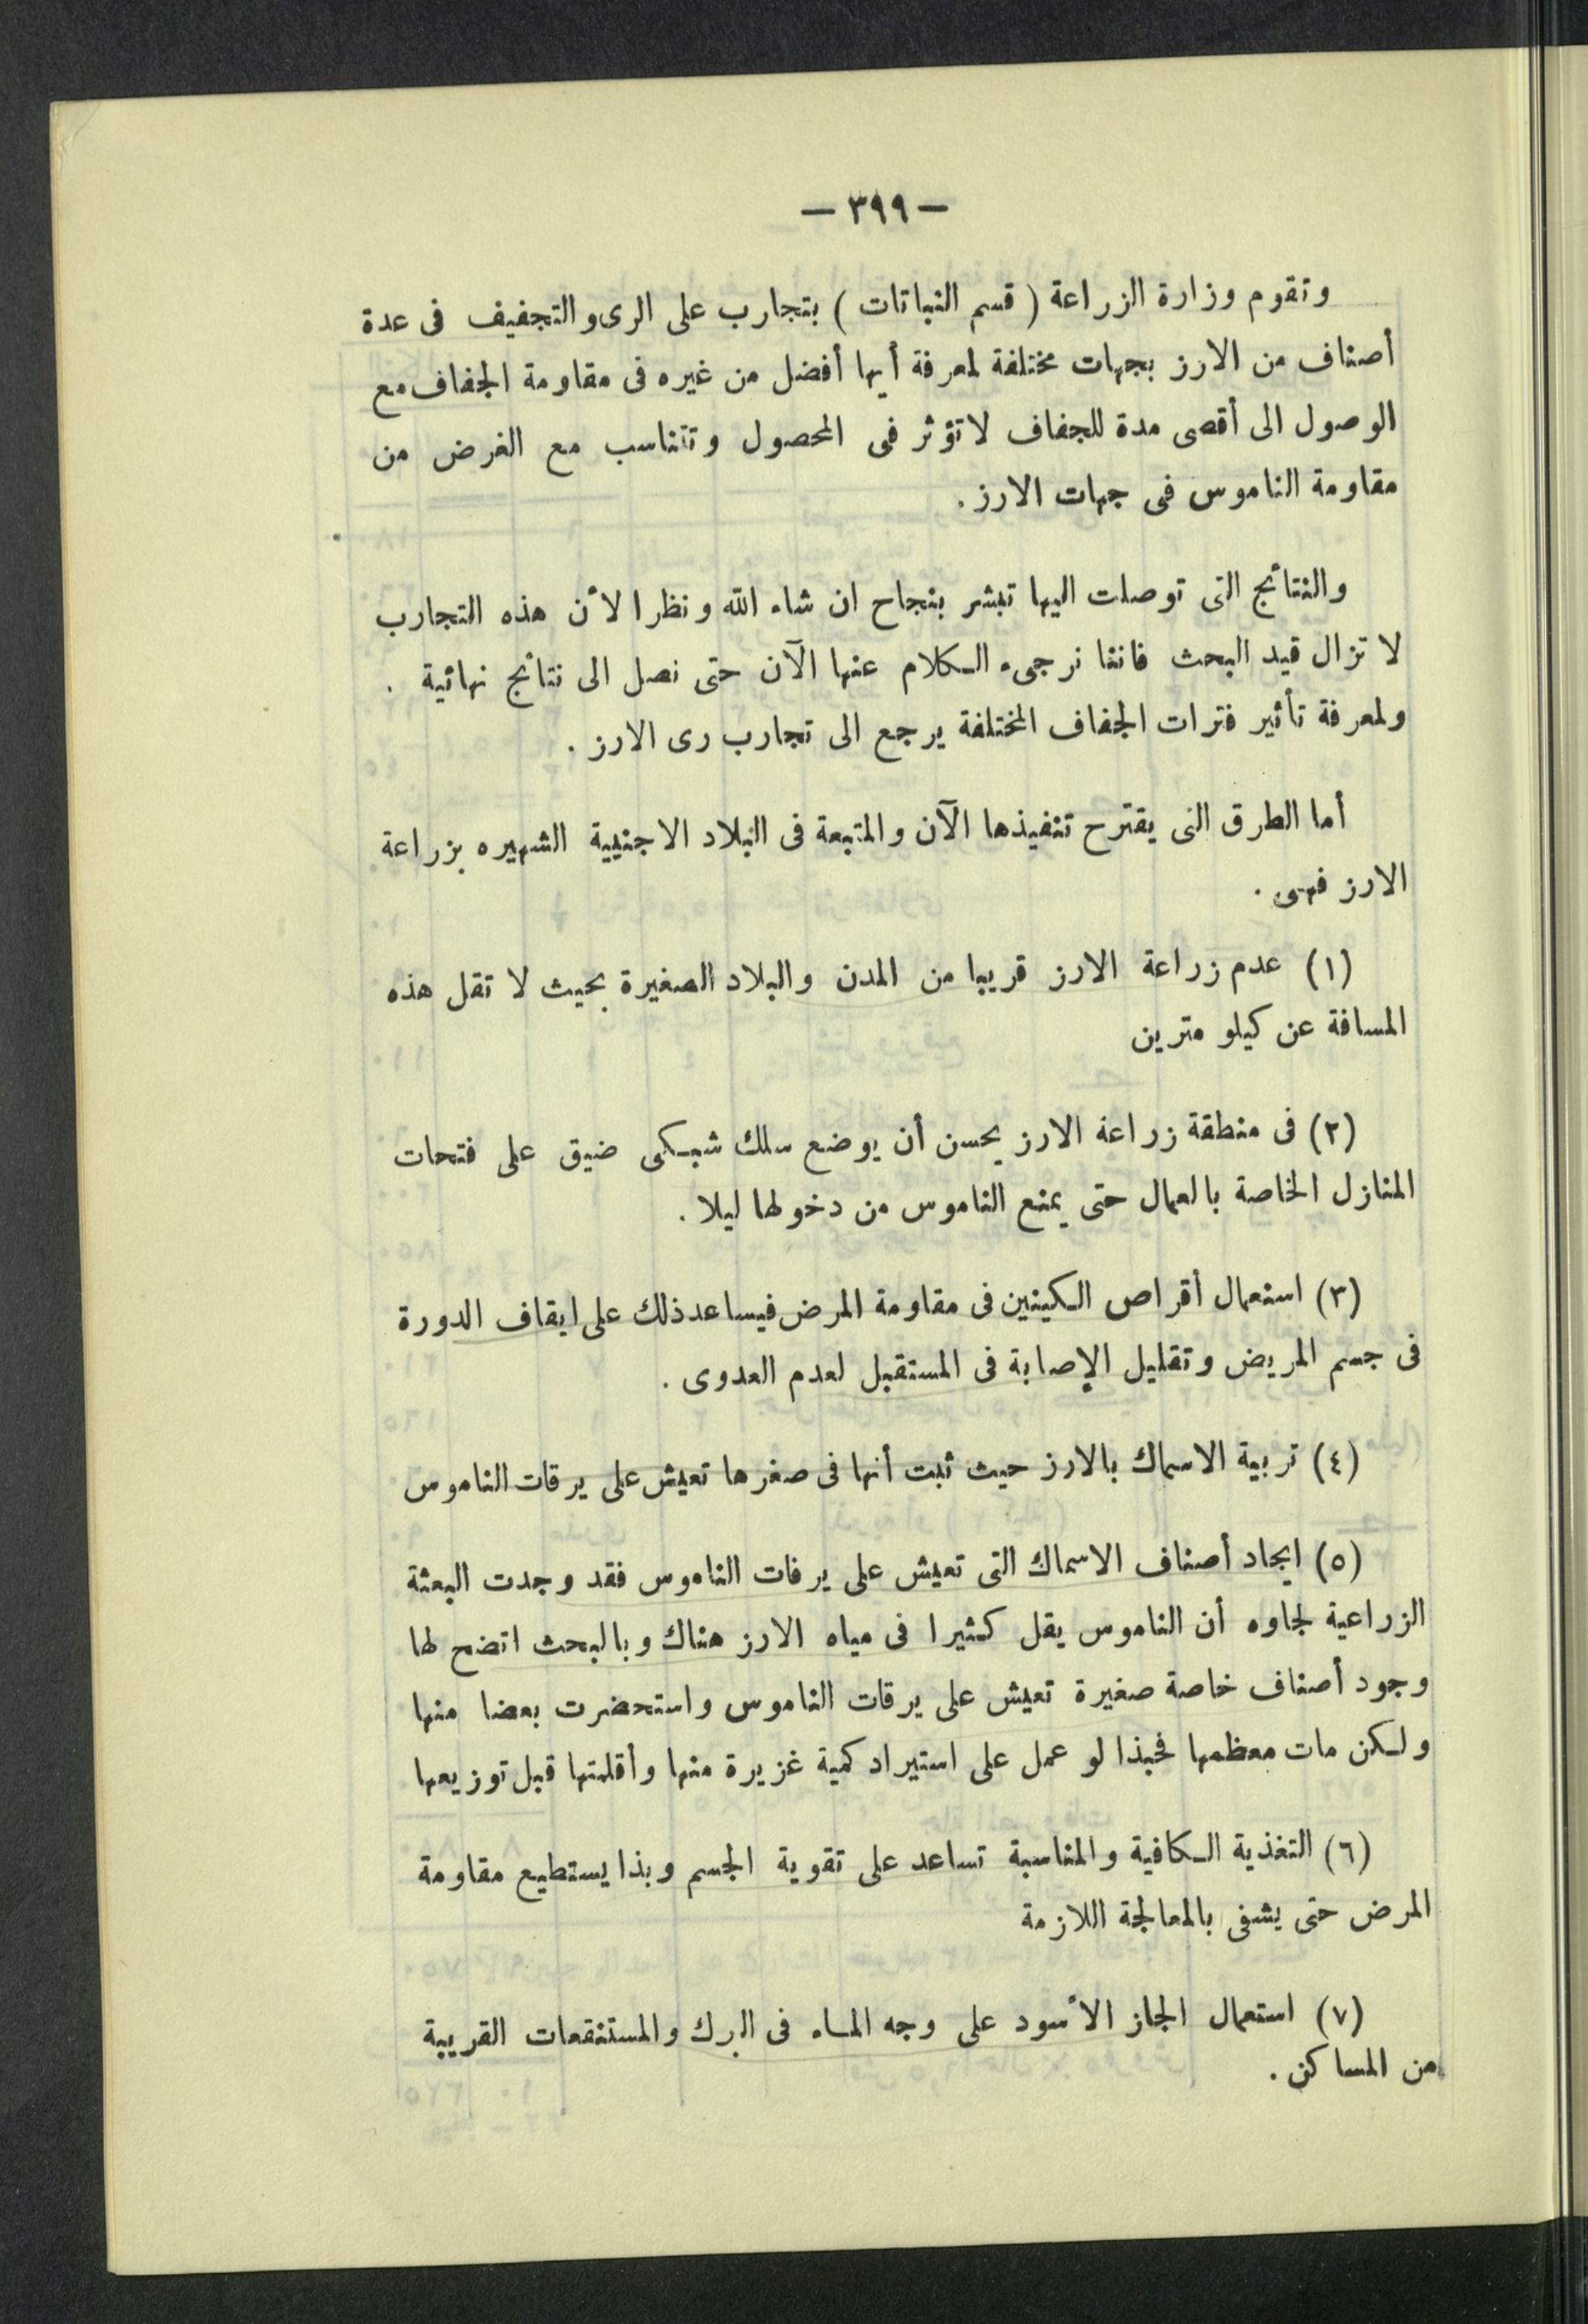 — ٣٩٩ —
وتقوم وزارة الزراعة ( قسم النباتات ) بتجارب على الرى والتجفيف فى عدة
أصناف من الارز بجهات مختلفة لمعرفة أيها أفضل من غيره فى مقاومة الجفاف مع
الوصول الى أقصى مدة للجفاف لا تؤثر فى المحصول وتتناسب مع الغرض من
مقاومة الناموس فى جهات الارز .
والنتائج التى توصلت اليها تبشر بنجاح ان شاء الله ونظرا لأن هذه التجارب
لا تزال قيد البحث فاننا نرجىء الكلام عنها الآن حتى نصل الى نتائج نهائية .
ولمعرفة تأثير فترات الجفاف المختلفة يرجع الى تجارب رى الارز .
أما الطرق التى يقترح تنفيذها الآن والمتبعة فى البلاد الاجنبية الشهيره بزراعة
الارز فهى .
(١) عدم زراعة الارز قريبا من المدن والبلاد الصغيرة بحيث لا تقل هذه
المسافة عن كيلو مترين
(٢) فى منطقة زراعة الارز يحسن أن يوضع سلك شبكى ضيق على فتحات
المنازل الخاصة بالعمال حتى يمنع الناموس من دخولها ليلا .
(٣) استعمال أقراص الكينين فى مقاومة المرض فيساعد ذلك على ايقاف الدورة
فى جسم المريض وتقليل الإصابة فى المستقبل لعدم العدوى .
(٤) تربية الاسماك بالارز حيث ثبت أنها فى صغرها تعيش على يرقات الناموس
(٥) ايجاد أصناف الاسماك التى تعيش على يرفات الناموس فقد وجدت البعثة
الزراعية لجاوه أن الناموس يقل كثيرا فى مياه الارز هناك وبالبحث اتضح لها
وجود أصناف خاصة صغيرة تعيش على يرقات الناموس واستحضرت بعضا منها
ولكن مات معظمها فحبذا لو عمل على استيراد كمية غزيرة منها وأقلمتها قبل توزيعها
(٦) التغذية الكافية والمناسبة تساعد على تقوية الجسم وبذا يستطيع مقاومة
المرض حتى يشفى بالمعالجة اللازمة
(٧) استعمال الجاز الأسود على وجه الماء فى البرك والمستنقعات القريبة
من المساكن .